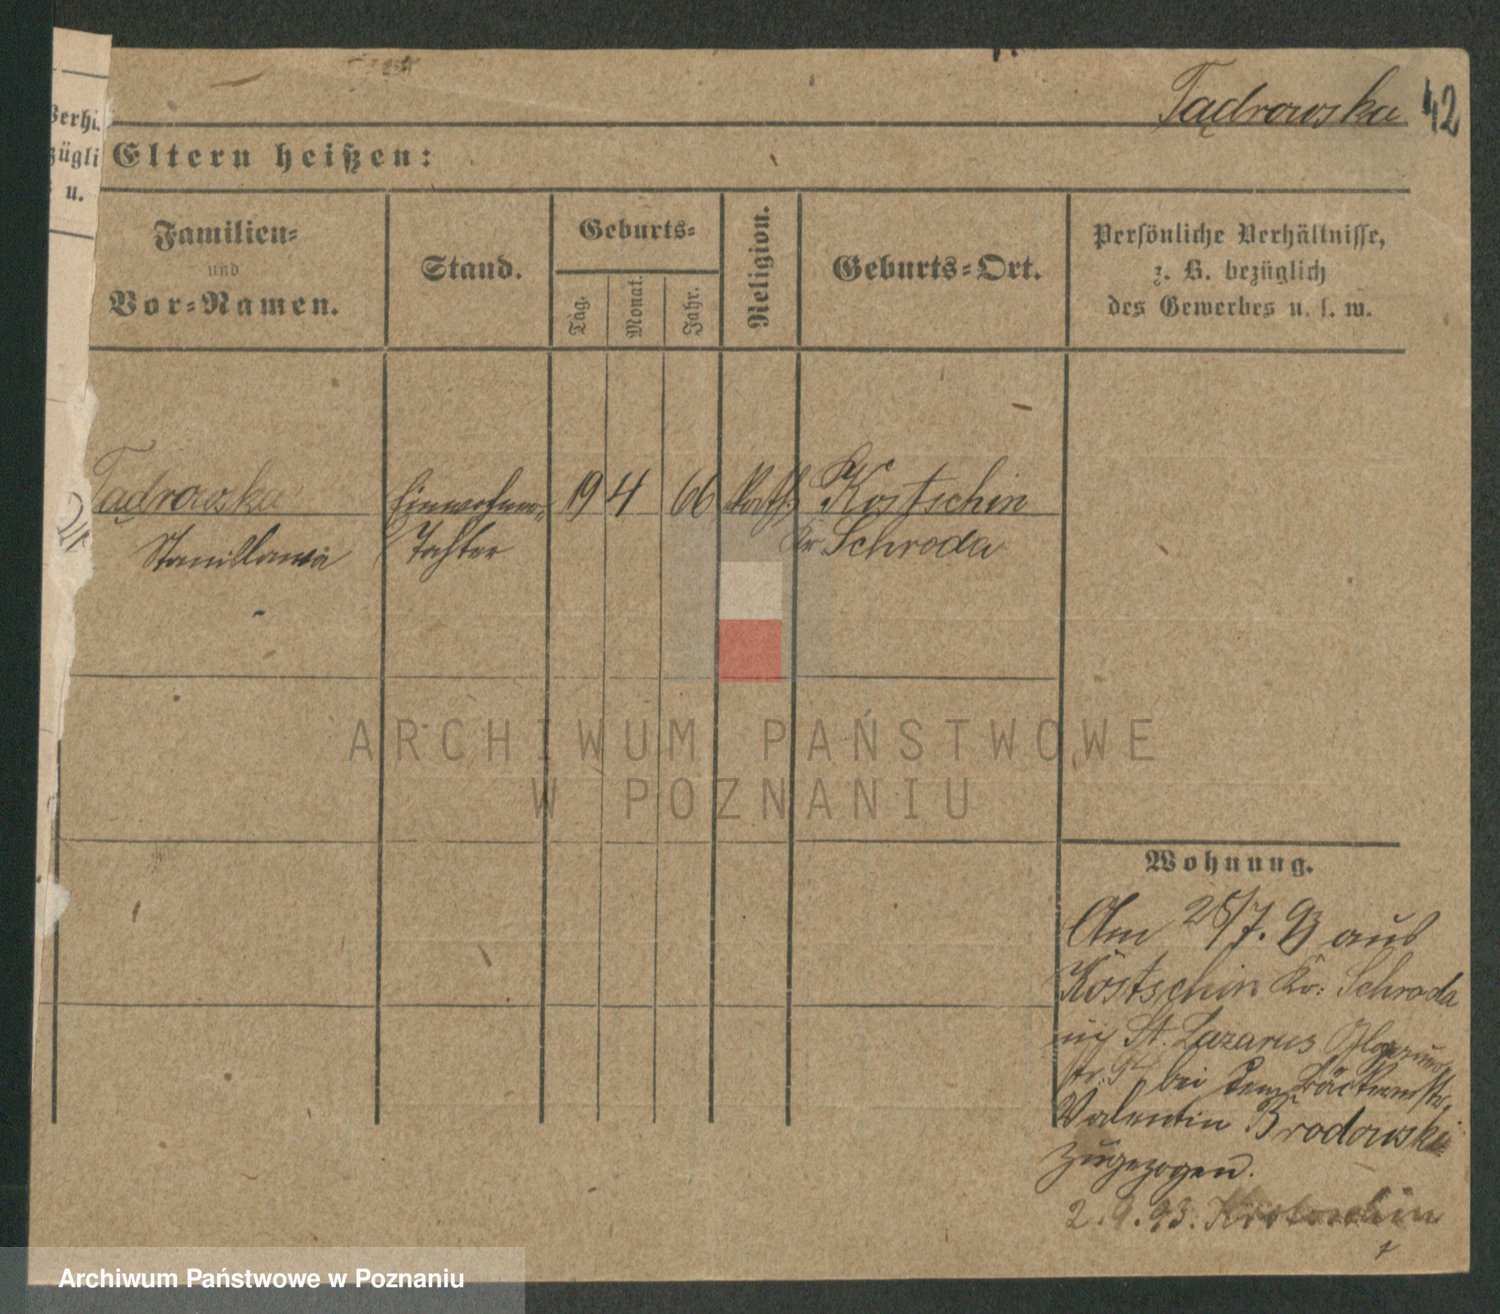 Tądrowska 42
Verhä
zügli
u.
Eltern heißen:
Familien-
und
Vor-Namen.
Stand.
Geburts-
Tag.
Monat.
Jahr.
Religion.
Geburts-Ort.
Persönliche Verhältnisse,
z. B. bezüglich
des Gewerbes u. s. w.
Tądrowska Einwohner- 19 4 66 Kath. Kostschin
Stanislawa Tochter Kr Schroda
ARCHIWUM PAŃSTWOWE
W POZNANIU
Wohnung.
Am 28/7. 93 aus
Kostschin Kr. Schroda
St. Lazarus
str. bei dem Bäckermstr.
Valentin Brodowski
zugezogen.
2.9.93.
Archiwum Państwowe w Poznaniu